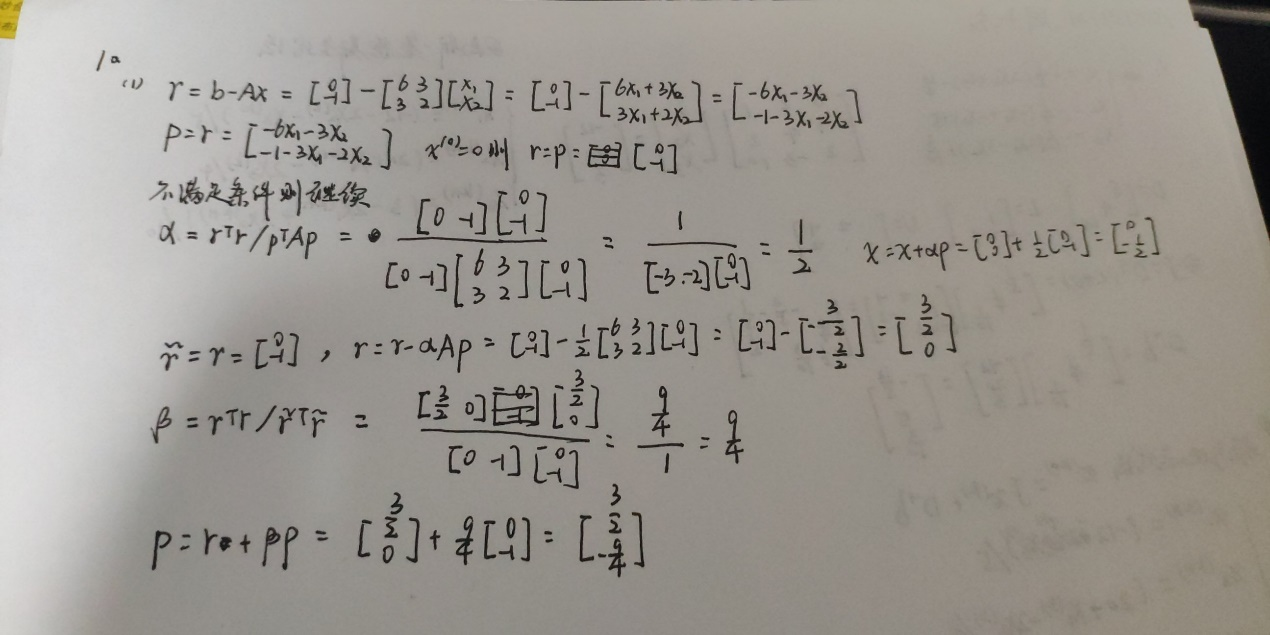 1a
(1) r = b-Ax = [0 -1] - [6 3 3 2][x₁ x₂] = [0 -1] - [6x₁+3x₂ 3x₁+2x₂] = [-6x₁-3x₂ -1-3x₁-2x₂]
p=r = [-6x₁-3x₂ -1-3x₁-2x₂] x⁽⁰⁾=0 则 r=p= [0 -1]
不满足条件则继续
α = rᵀr/pᵀAp = [0 -1][0 -1] / [0 -1][6 3 3 2][0 -1] = 1 / [-3 -2][0 -1] = 1/2 x=x+αp=[0 0]+1/2[0 -1]=[0 -1/2]
r̃=r=[0 -1], r=r-αAp = [0 -1]-1/2[6 3 3 2][0 -1] = [0 -1]-[-3/2 -2/2] = [3/2 0]
β = rᵀr/r̃ᵀr̃ = [3/2 0][3/2 0] / [0 -1][0 -1] = 9/4 / 1 = 9/4
p=r+βp = [3/2 0]+9/4[0 -1] = [3/2 -9/4]